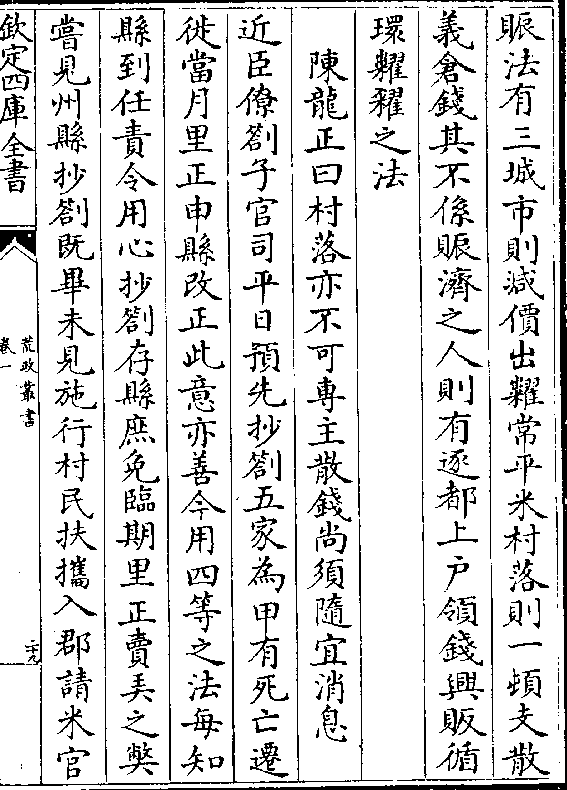 賑法有三城市則减價出糶常平米村落則一頓支散
義倉錢其不係賑濟之人則有逐都上户領錢興販循
環糶糴之法
陳龍正曰村落亦不可專主散錢尚須隨宜消息
近臣僚劄子官司平日預先抄劄五家為甲有死亡遷
徙當月里正申縣改正此意亦善今用四等之法每知
縣到任責令用心抄劄存縣庶免臨期里正賣弄之弊
嘗見州縣抄劄既畢未見施行村民扶攜入郡請米官
欽定四庫全書
荒政叢書
卷一
二十九